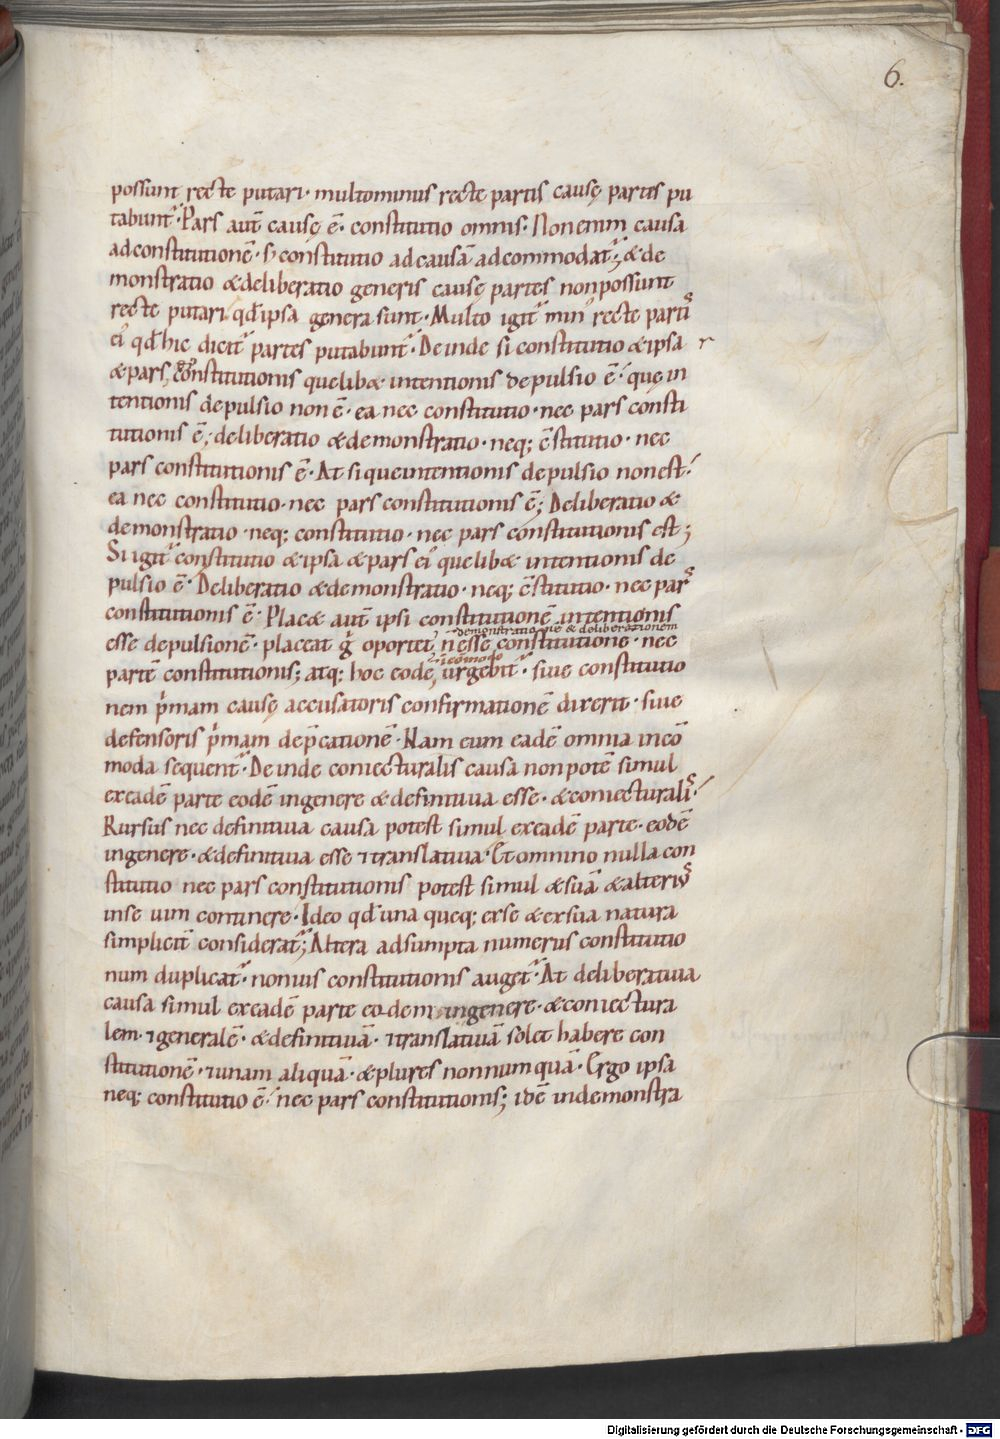 6.
possunt recte putari· multominus recte partis causę partes pu
tabunt᷑· Pars aut̄ causę ē· constitutio omnis· Non enim causa
ad constitutionē· s; constitutio ad causā adcommodat᷑; & de
monstratio & deliberatio generis causę partes non possunt
recte putari qđ ipsa genera sunt· Multo igit᷑ min᷒ recte partis
ei᷒ qđ hic dicit᷑ partes putabunt᷑· Deinde si constitutio & ipsa r
& pars constitutionis quelib& intentionis depulsio ē· quę in
tentionis depulsio non ē· ea nec constitutio· nec pars consti
tutionis ē; deliberatio & demonstratio· neq; c̄stitutio· nec
pars constitutionis ē· At si que intentionis depulsio non est·
ea nec constitutio· nec pars constitutionis ē; Deliberatio &
demonstratio· neq; constitutio· nec pars constitutionis est;
Si igit᷑ constitutio & ipsa & pars ei᷒ quelib& intentionis de
pulsio ē· Deliberatio & demonstratio· neq; c̄stitutio· nec pars
constitutionis ē· Plac& aut̄ ipsi constitutionē intentionis
demonstrationē & deliberationem
esse depulsionē· placeat g̊ oportet n̄ esse constitutionē· nec
incōmodo
partē constitutionis; atq; hoc eodē urgebit᷑· siue constitutio
nem p̍mam causę accusatoris confirmationē dixerit· siue
defensoris p̍mam dep̄cationē· Nam eum eadē omnia incō
moda sequent᷑· Deinde coniecturalis causa non potē simul
ex eadē parte eodē in genere & definitiua esse· & coniecturalis·
Rursus nec definitiua causa potest simul ex eadē parte· eodē
in genere· & definitiua esse ⁊ translatiua· Et omnino nulla con
stitutio nec pars constitutionis potest simul & suā & alterius
in se uim continere· Ideo qđ una queq; ex se & ex sua natura
simplicit᷑ considerat᷑; Altera adsumpta numerus constitutio
num duplicat᷑· non uis constitutionis auget᷑· At deliberatiua
causa simul ex eadē parte eodem in genere· & coniectura
lem· ⁊ generalē· & definitiuā· ⁊ translatiuā solet habere con
stitutionē· ⁊ unam aliquā· & plures nonnumquā· Ergo ipsa
neq; constitutio ē· nec pars constitutionis; idē in demonstra
Digitalisierung gefördert durch die Deutsche Forschungsgemeinschaft - DFG